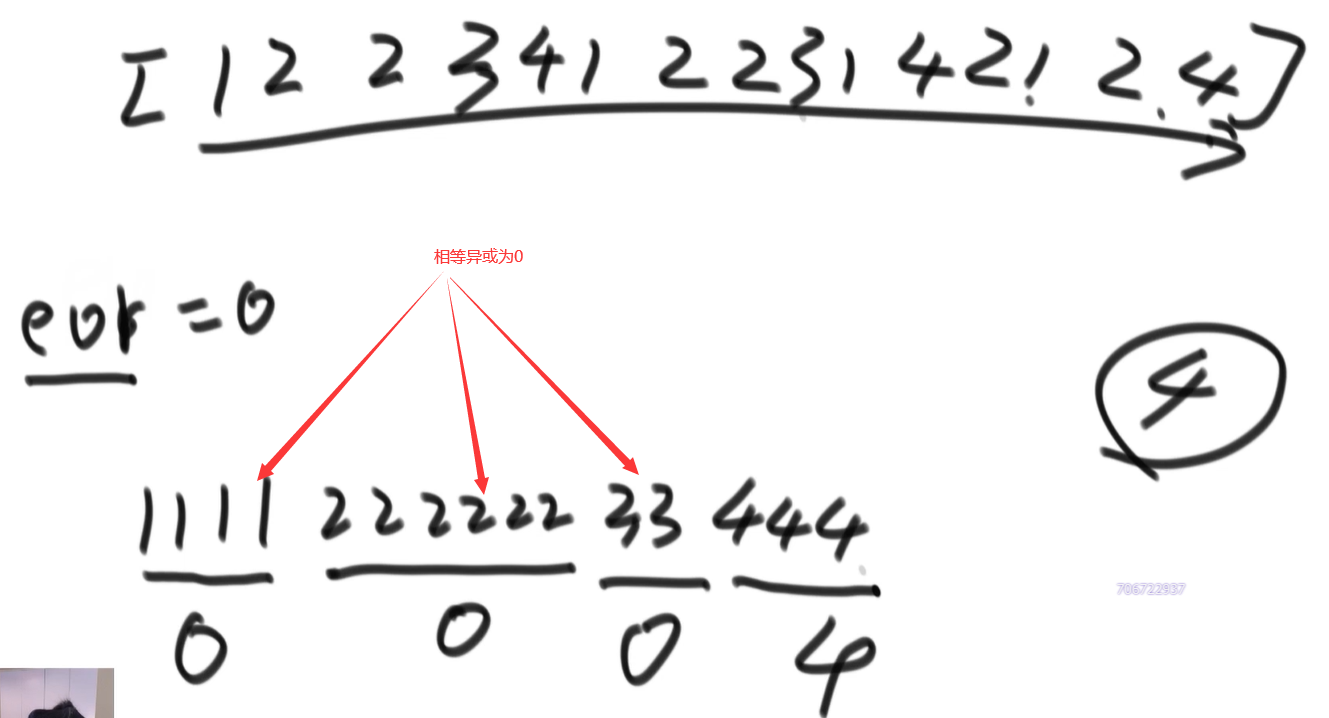 [ 1 2 2 3 4 1 2 2 3 1 4 2 1 2 4 ]
相等异或为0
eor = 0
4
1111 222222 33 444
706722937
0 0 0 4